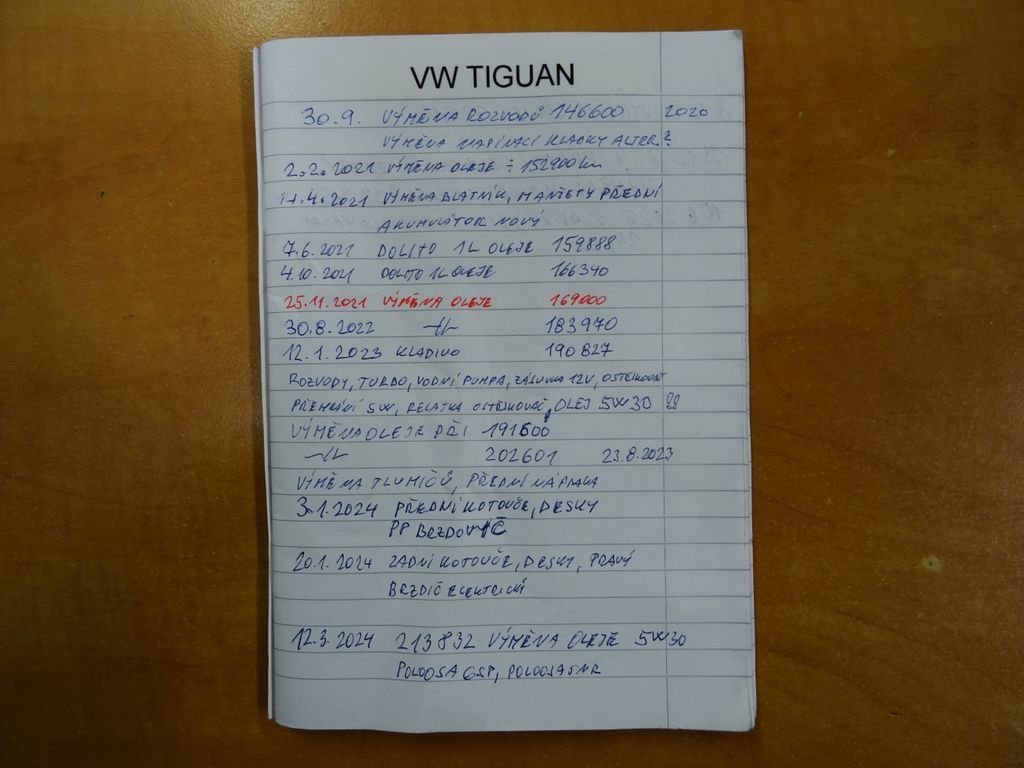 VW TIGUAN
30.9. VÝMĚNA ROZVODŮ 146600 2020
VÝMĚNA NAPÍNACÍ KLADKY ALTER.
2.2.2021 VÝMĚNA OLEJE ÷ 152900 km
14.4.2021 VÝMĚNA BLATNÍK, MANŽETY PŘEDNÍ
AKUMULÁTOR NOVÝ
7.6.2021 DOLITO 1L OLEJE 159888
4.10.2021 DOLITO 1L OLEJE 166340
25.11.2021 VÝMĚNA OLEJE 169000
30.8.2022 -//- 183970
12.1.2023 KLADIVO 190827
ROZVODY, TURBO, VODNÍ PUMPA, ZÁSUVKA 12V, OSTŘIKOVAČ
SW, RELATKA OSTŘIKOVAČ, OLEJ 5W30 !!
VÝMĚNA OLEJE PŘI 191600
-//- 202601 23.8.2023
VÝMĚNA TLUMIČŮ, PŘEDNÍ NÁPRAVA
3.1.2024 PŘEDNÍ KOTOUČE, DESKY
PP BRZDOVIČ
20.1.2024 ZADNÍ KOTOUČE, DESKY, PRAVÝ
BRZDIČ ELEKTRICKÝ
12.3.2024 213832 VÝMĚNA OLEJE 5W30
POLOOSA GSP, POLOOSA SNR